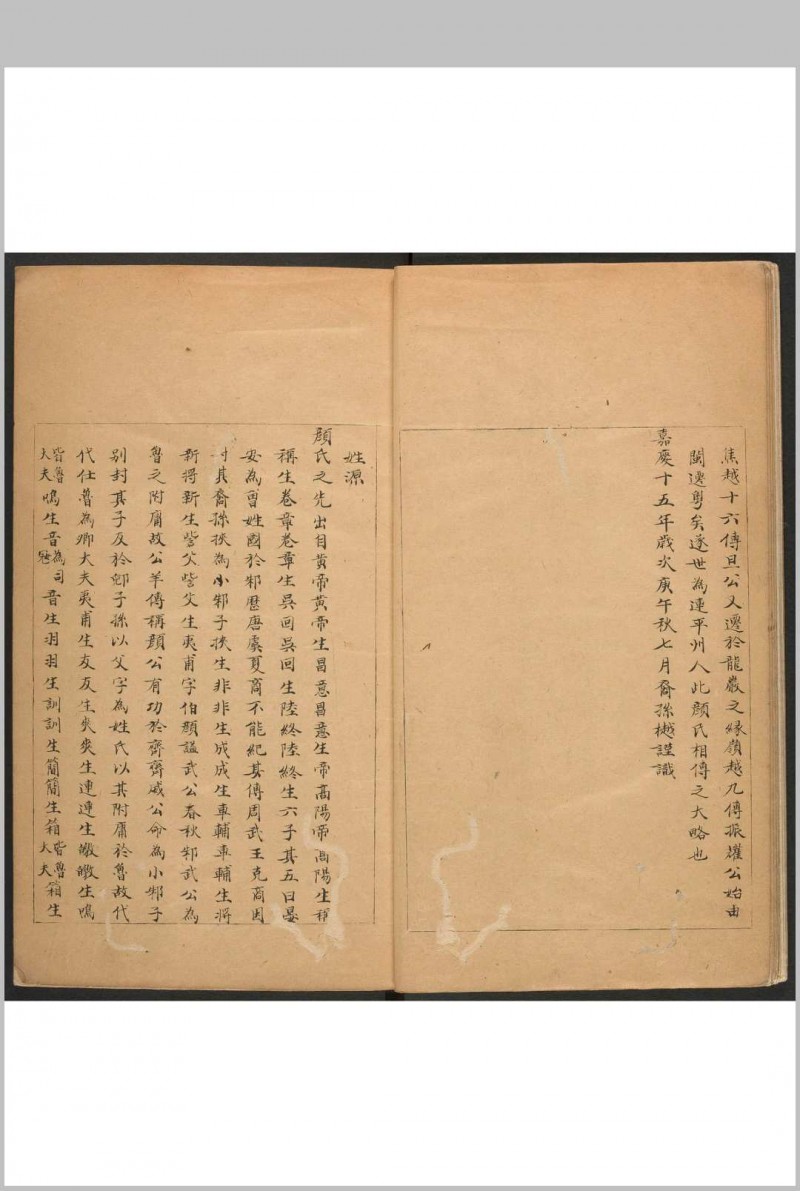 焦越十六傳且公又遷於龍巖之緣嶺越九傳振耀公始由
閩遷粵矣遂世為連平州人此顏氏相傳之大略也
嘉慶十五年歲次庚午秋七月裔孫樾謹識
姓源
顏氏之先出自黃帝黃帝生昌意昌意生帝高陽帝高陽生稱
稱生卷章卷章生吳回吳回生陸終陸終生六子其五曰晏
安為曹姓國於邾歷唐虞夏商不能紀其傳周武王克商因
封其裔孫挾為小邾子挾生非非生成成生車輔車輔生將
新將新生訾父訾父生夷甫字伯顏諡武公春秋邾武公為
魯之附庸故公羊傳稱顏公有功於齊齊威公命為小邾子
別封其子友於郳子孫以父字為姓氏以其附庸於魯故代
代仕魯為卿大夫夷甫生友友生爽爽生連連生皦皦生鳴
皆魯大夫鳴生音為司寇音生羽羽生訓訓生簡簡生箱皆魯大夫箱生